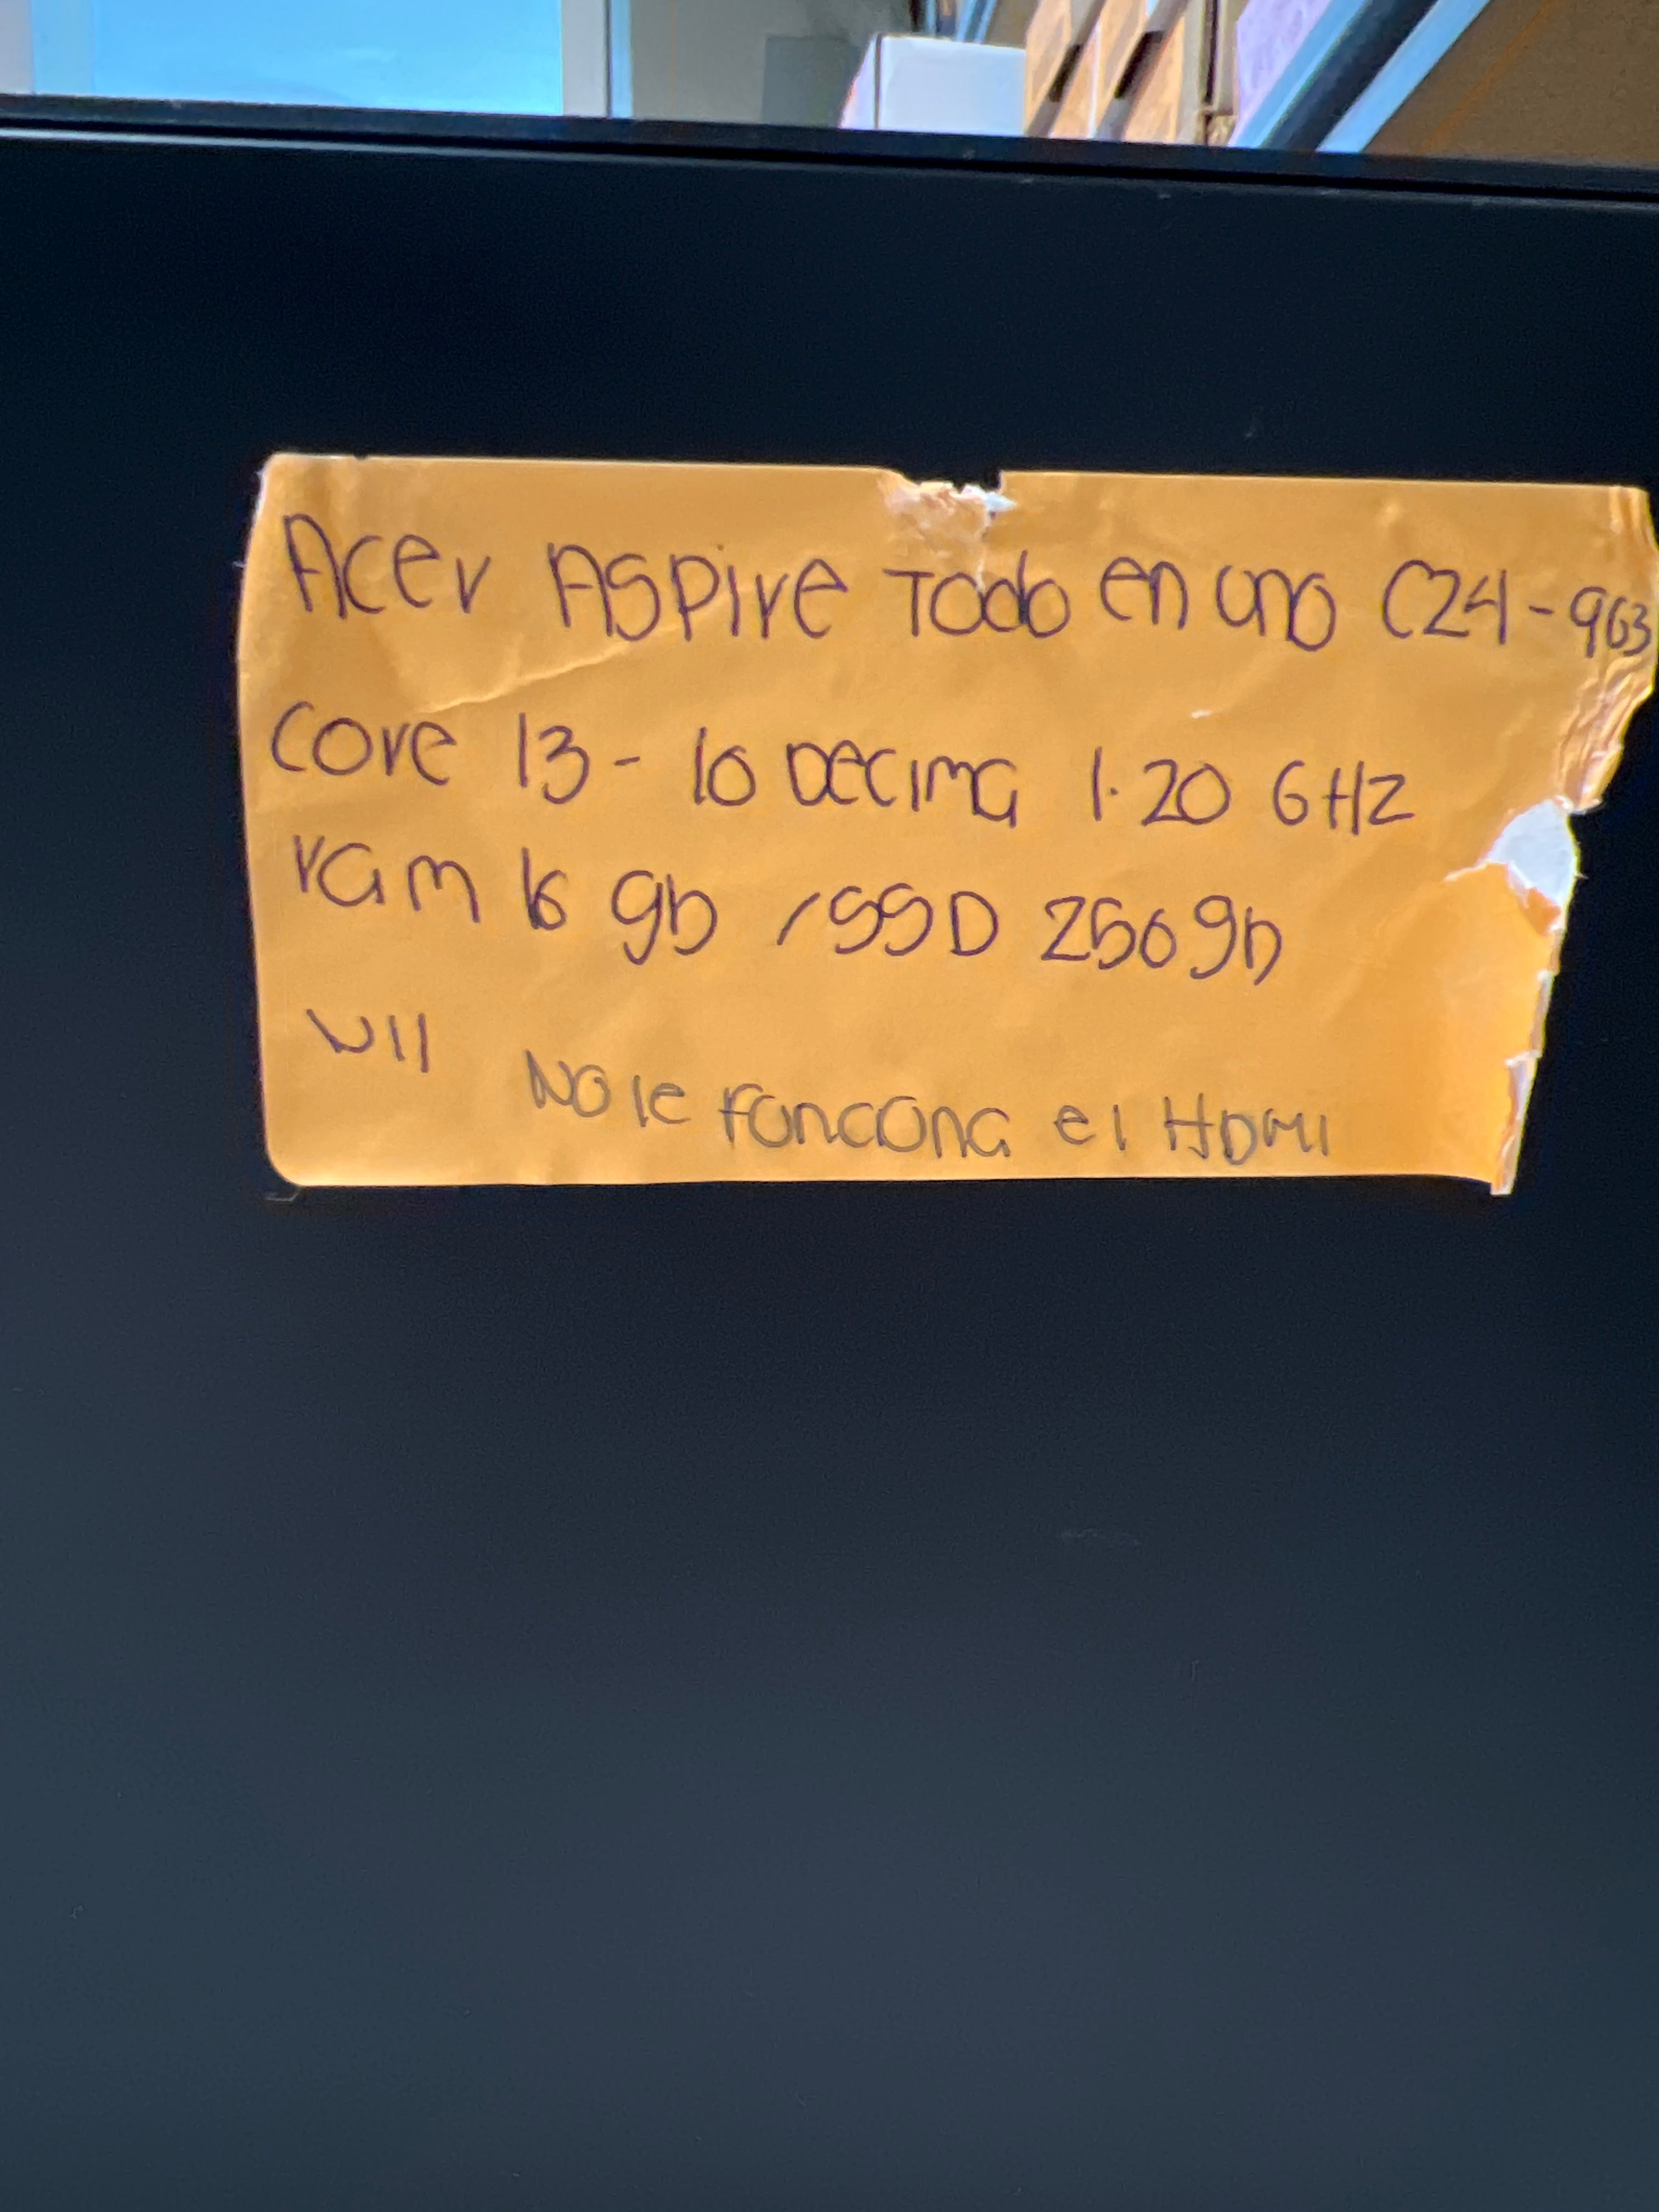 Acer Aspire Todo en uno C24-963
core i3 - 10 Decima 1.20 GHz
ram 16 gb / SSD 256 gb
W11
No le funcona el HDMI